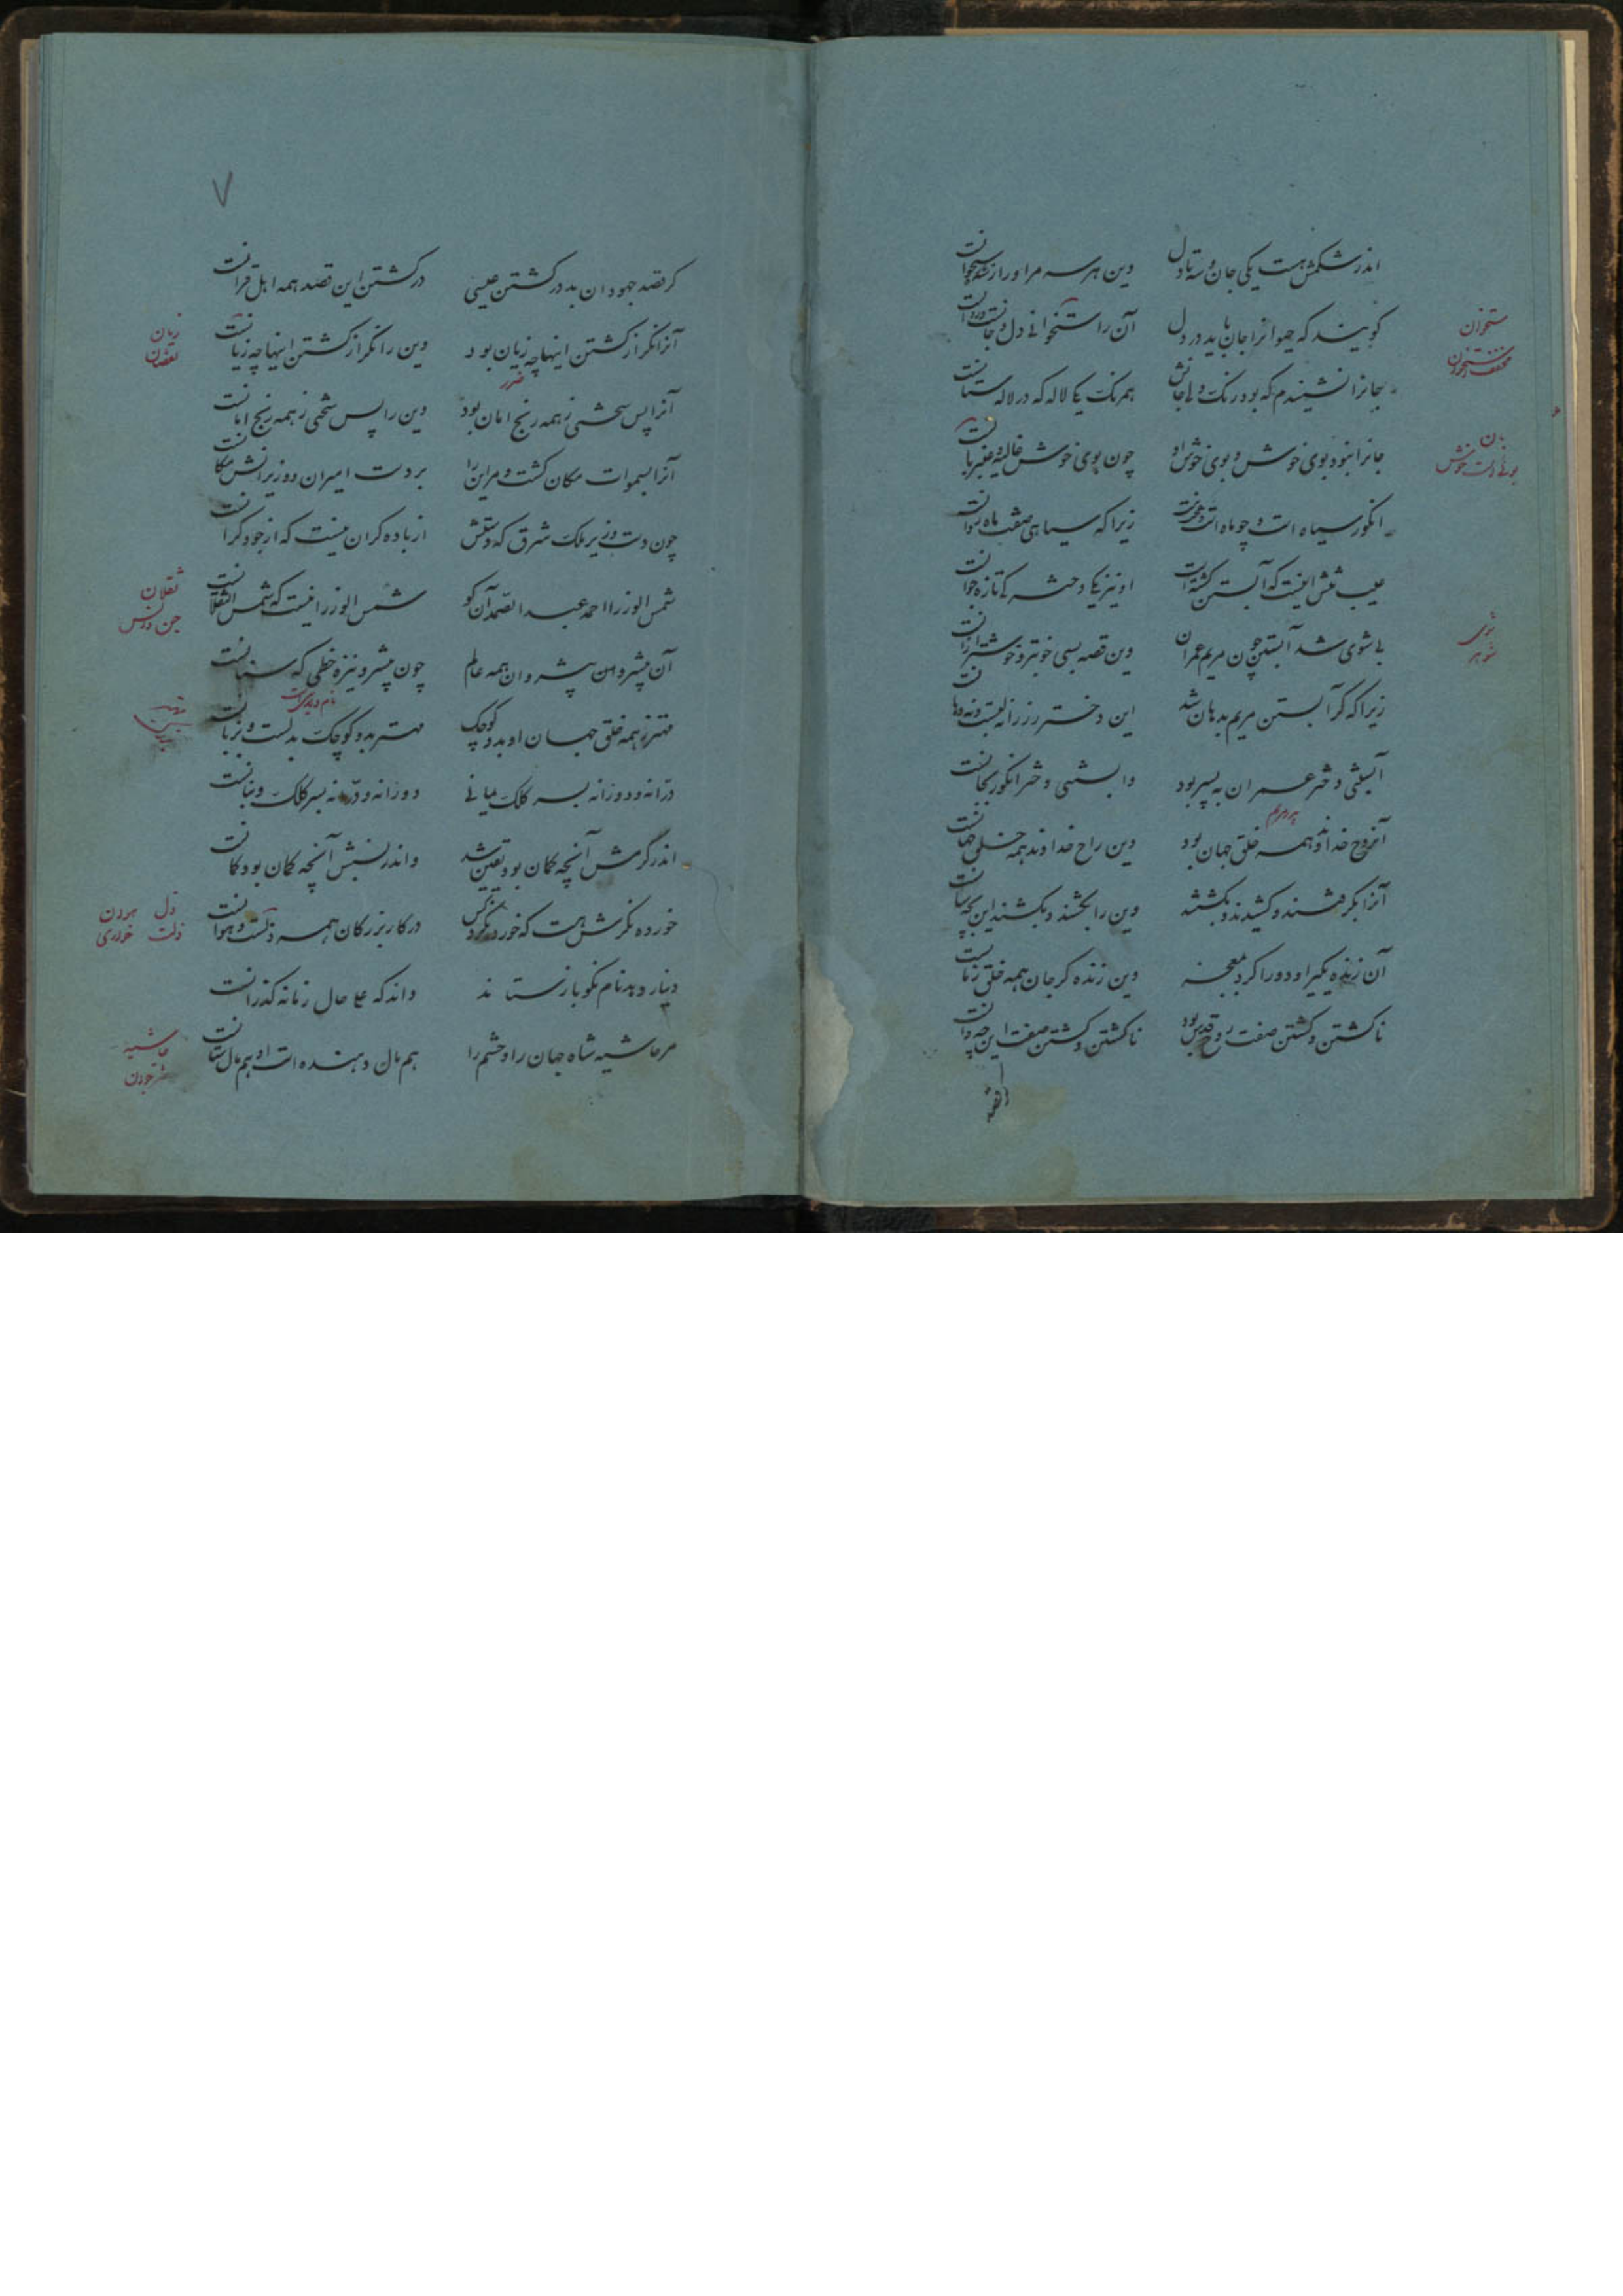 اندر شکمش هست یکی جان و سه تا دل وین هر سه مر او را ز سه ستخوانست
گویند که حیوانرا جان باید در دل آن را ستخوانی دل و جانست و روانست
جانرا نشنیدم که بود رنگ ولی جانش همرنگ یکی لاله که در لاله ستانست
جانرا نبود بوی خوش و بوی خوش او چون بوی خوش غالیه و عنبر بانست
انگور سیاه است و چو ماه است زیرا که سیاهی صفت ماه روانست
عیب تنش اینست که آبستن گشته است او نیز یکی دخترکی تازه جوانست
بی شوی شد آبستن چون مریم عمران وین قصه بسی خوبتر و خوشتر از آنست
زیرا که گر آبستن مریم بدهان شد این دختر رز را نه لبست و نه دهانست
آبستنی دختر عمران به پسر بود وابستنی دختر انگور بجانست
آن روح خداوند همه خلق جهان بود وین راح خداوند همه خلق جهانست
آنرا بگرفتند و کشیدند و بکشتند وین را بکشند و بکشند این بچه سانست
آن زنده یکی را و دو را کرد بمعجز وین زنده گر جان همه خلق زمانست
ناکشتن و کشتن صفت روح قدس بود ناکشتن و کشتن صفت این چه روانست
ستخوان
مخفف استخوان
بان
شوی
شوهر
۷
گر قصد جهودان بد در کشتن عیسی در کشتن این قصد همه اهل قرانست
آنرا نگر از کشتن اینها چه زیان بود وین را نگر از کشتن اینها چه زیانست
ضرر
آنرا پس سختی ز همه رنج امان بود وین را پس سختی ز همه رنج امانست
آنرا بسموات مکان گشت و مر این را بر دست امیران و وزیرانش مکانست
چون دست وزیر ملک شرق که دستش از باده گران نیست که از جود گرانست
شمس الوزرا احمد عبد الصمد آن کو شمس الوزرا نیست که شمس الثقلانست
آن پیشرو پیشروان همه عالم چون پیشرو نیزه خطی که سنانست
مهتر ز همه خلق جهان او بدو کوچک مهتر بدو کوچک بدلست و بزبانست
درانه و دوزانه بسر کلک یمانی دوزانه و درانه بسر کلک و بنانست
اندر کرمش آنچه گمان بود یقین شد واندر نسبش آنچه گمان بود گمانست
خورده نگرش نیست که خورده نگرد کس در کار بزرگان همه ذلست و هوانست
دینار دهد نام نکو باز ستاند داند که علی حال زمانه گذرانست
مر حاشیه شاه جهان را و حشم را هم مال دهنده است او هم مال ستانست
زیان
نقصان
ثقلان
جن و انس
ذل
ذلت
هوان
خواری
حاشیه